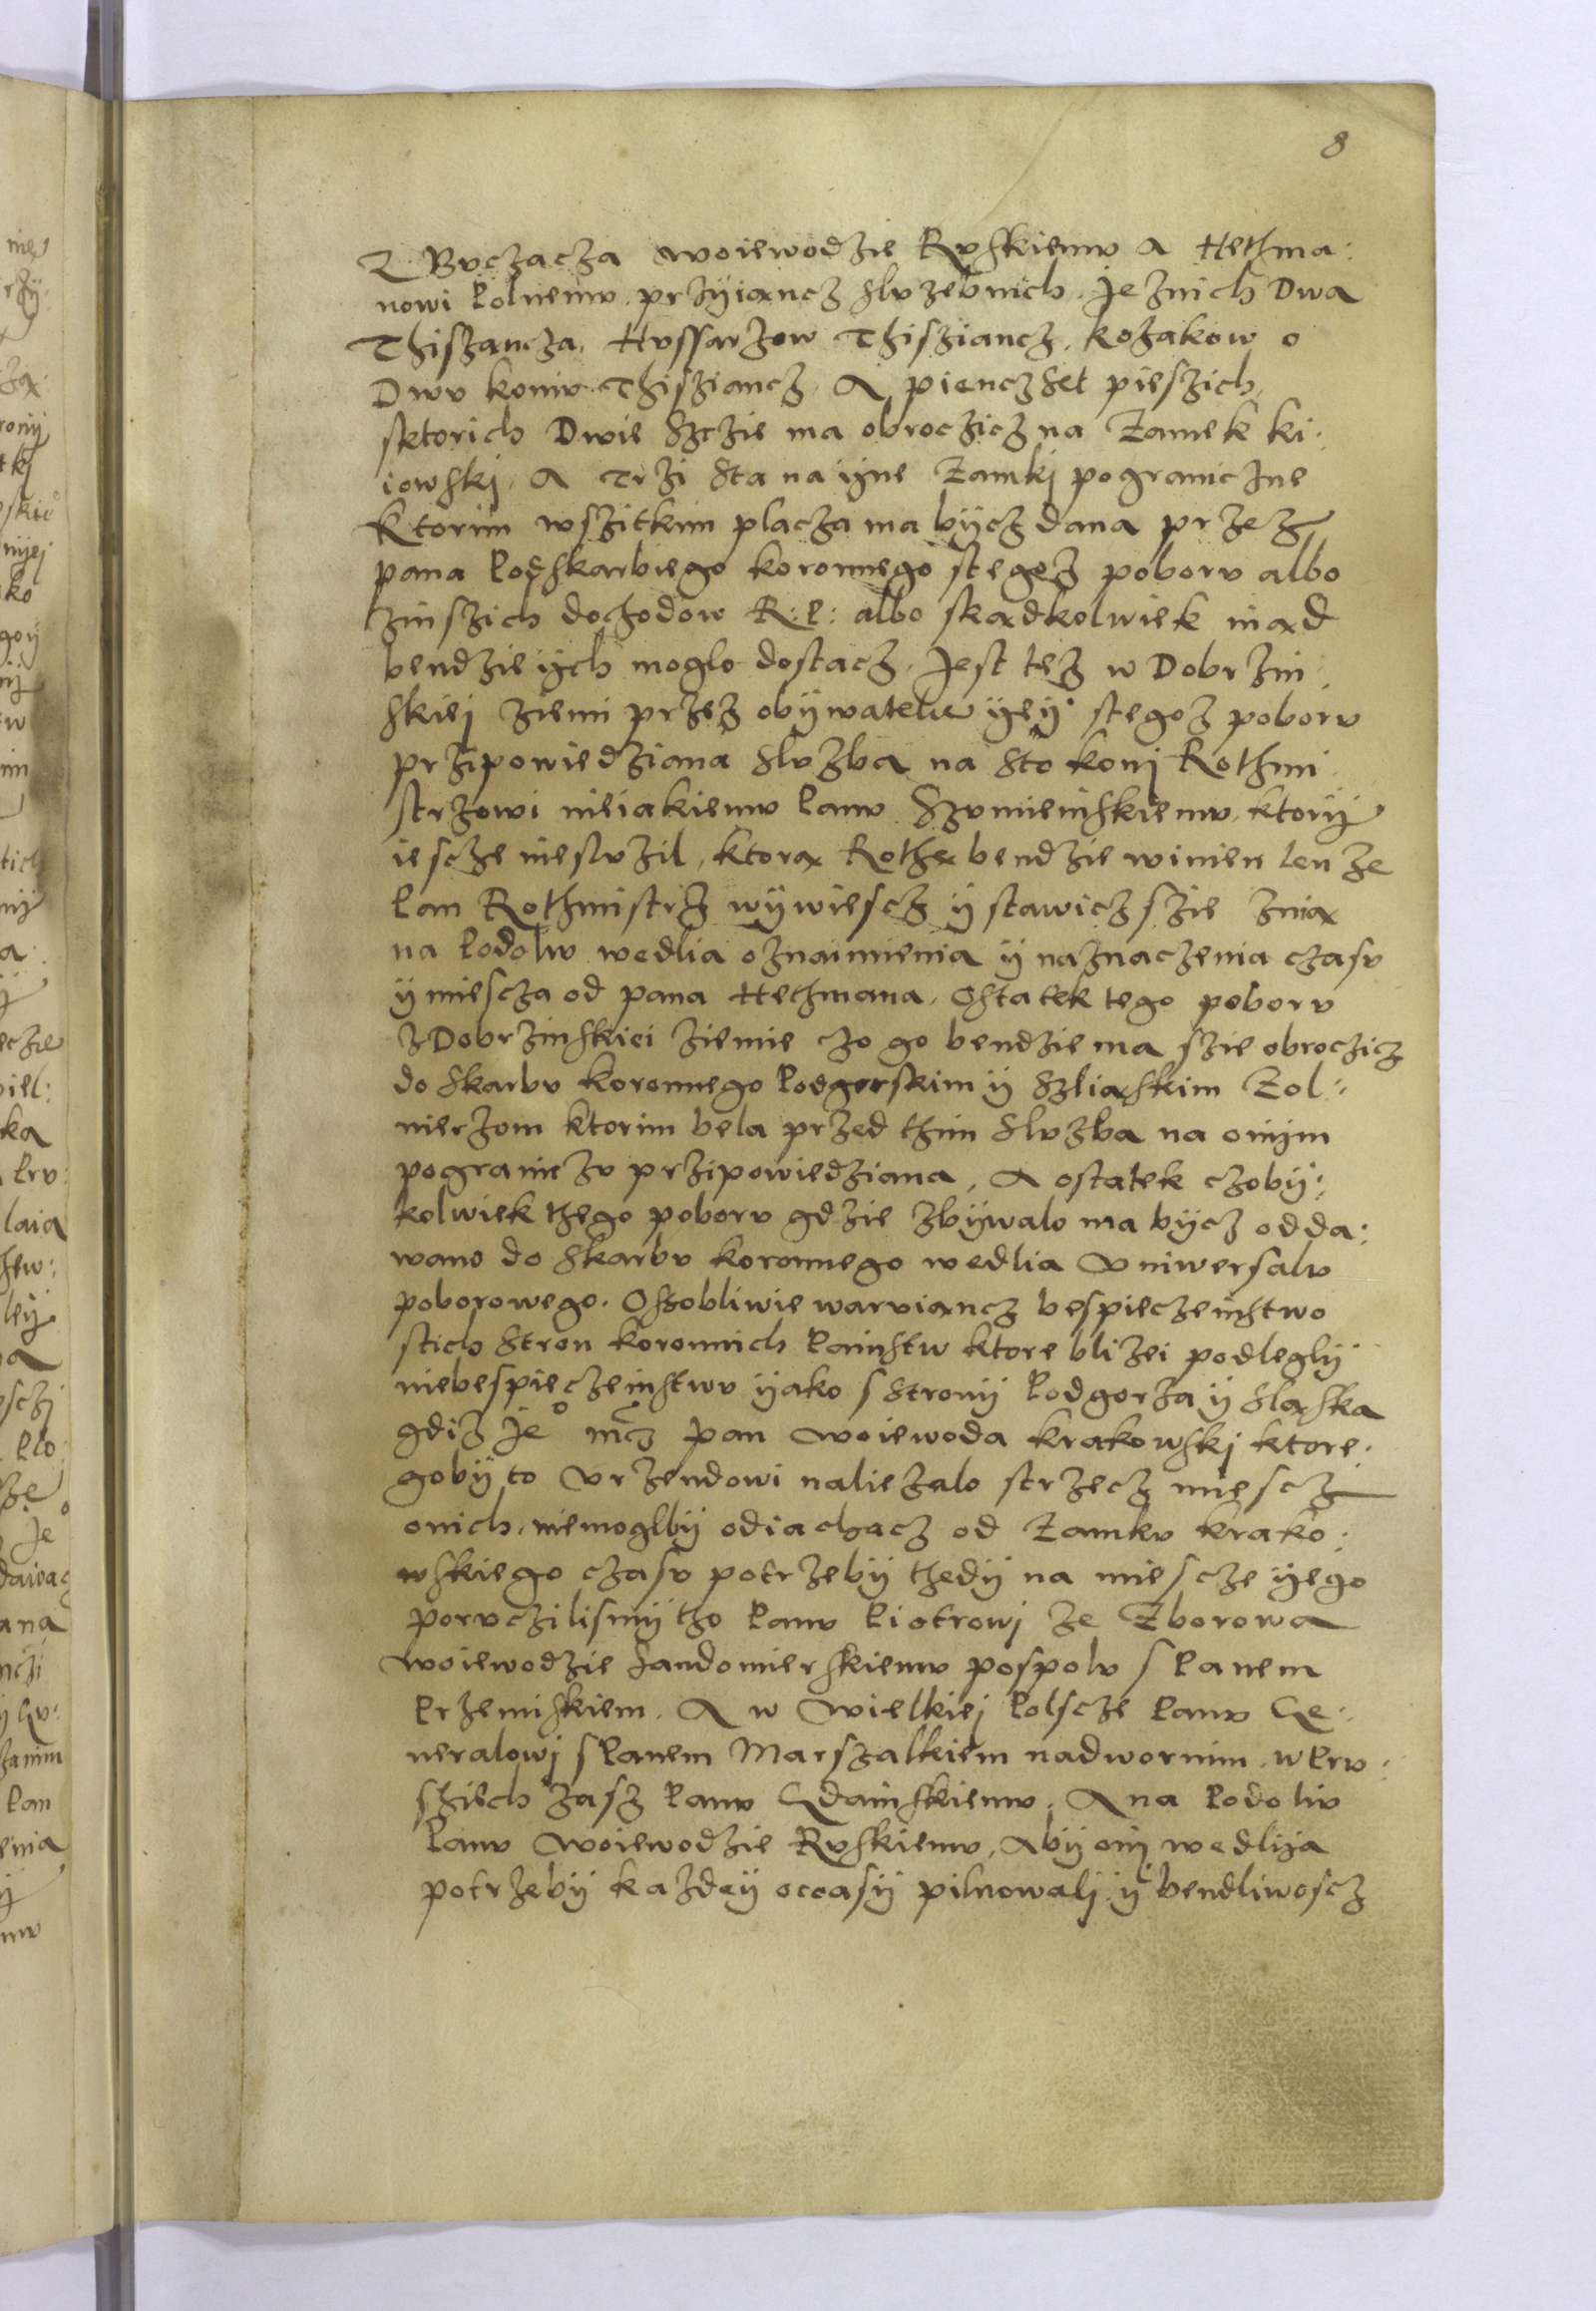 8
Z Bvczacza woiewodzie Rvskiemv A Hethma:
nowi Polnemv przyiancz slvzebnich Jeznich Dwa
Thiszancza, Hvssarzow Thisziancz, kozakow o
Dwv koniv Thisziancz A pienczset pieszich,
sktorich Dwie Szczie ma obroczicz na Zamek ki:
iowskj, A Trzi sta na ijne Zamkj pograniczne
Ktorim wszitkim placza ma bÿcz dana przez
pana Podskarbiego koronnego stegoz poborv albo
zinszich dochodow R: P: albo skadkolwiek niad
bendzie ijch moglo dostacz, Jest tez w Dobrzin:
skiej ziemi przez obÿwatelie ÿeÿ stegoz poborv
przipowiedziana slvzba na sto konj Rothmi:
strzowi nieiakiemv Panv Szvmienskiemv, ktorÿ
iescze nieslvzil, ktora Rothe bendzie winien ten ze
Pan Rothmistrz wÿwiescz ÿ stawicz szie znia
na Podoliv wedlia oznaimienia ÿ naznaczenia czasv
ÿ miescza od pana Hethmana, Ostatek tego poborv
z Dobrzinskiei ziemie czo go bendzie ma szie obroczicz
do skarbv koronnego Podgorskim ÿ Szliaskim Zol:
nierzom ktorim bela przed thim slvzba na onÿm
pograniczv przipowiedziana, A ostatek czobÿ:
kolwiek thego poborv gdzie zbÿwalo ma bÿcz odda:
wano do skarbv koronnego wedlia Vniwersalv
poborowego. Osobliwie warviancz bespieczenstwo
stich stron koronnich Painstw ktore blizei podleglÿ
niebespieczeinstwv ÿako s stronÿ Podgorza ÿ slaska
gdiz Je° mcz pan woiewoda krakowskj ktore:
gobÿ to Vrzendowi naliezalo strzecz miescz
onich, niemoglbÿ odiachacz od Zamkv krako:
wskiego czasv potrzebÿ thedÿ na miescze ÿego
porvczilismÿ tho Panv Piotrowj ze Zborowa
woiewodzie Sandomierskiemv pospolv s Panem
Przemiskiem. A w Wielkiej Polscze Panv Ge:
neralowj s Panem Marszalkiem nadwornim, w Prv:
sziech zasz Panv Gdainskiemv, A na Podoliv
Panv Woiewodzie Rvskiemv, Abÿ onj wedlija
potrzebÿ kazdeÿ occasÿ pilnowalj, ÿ bendliwoscz